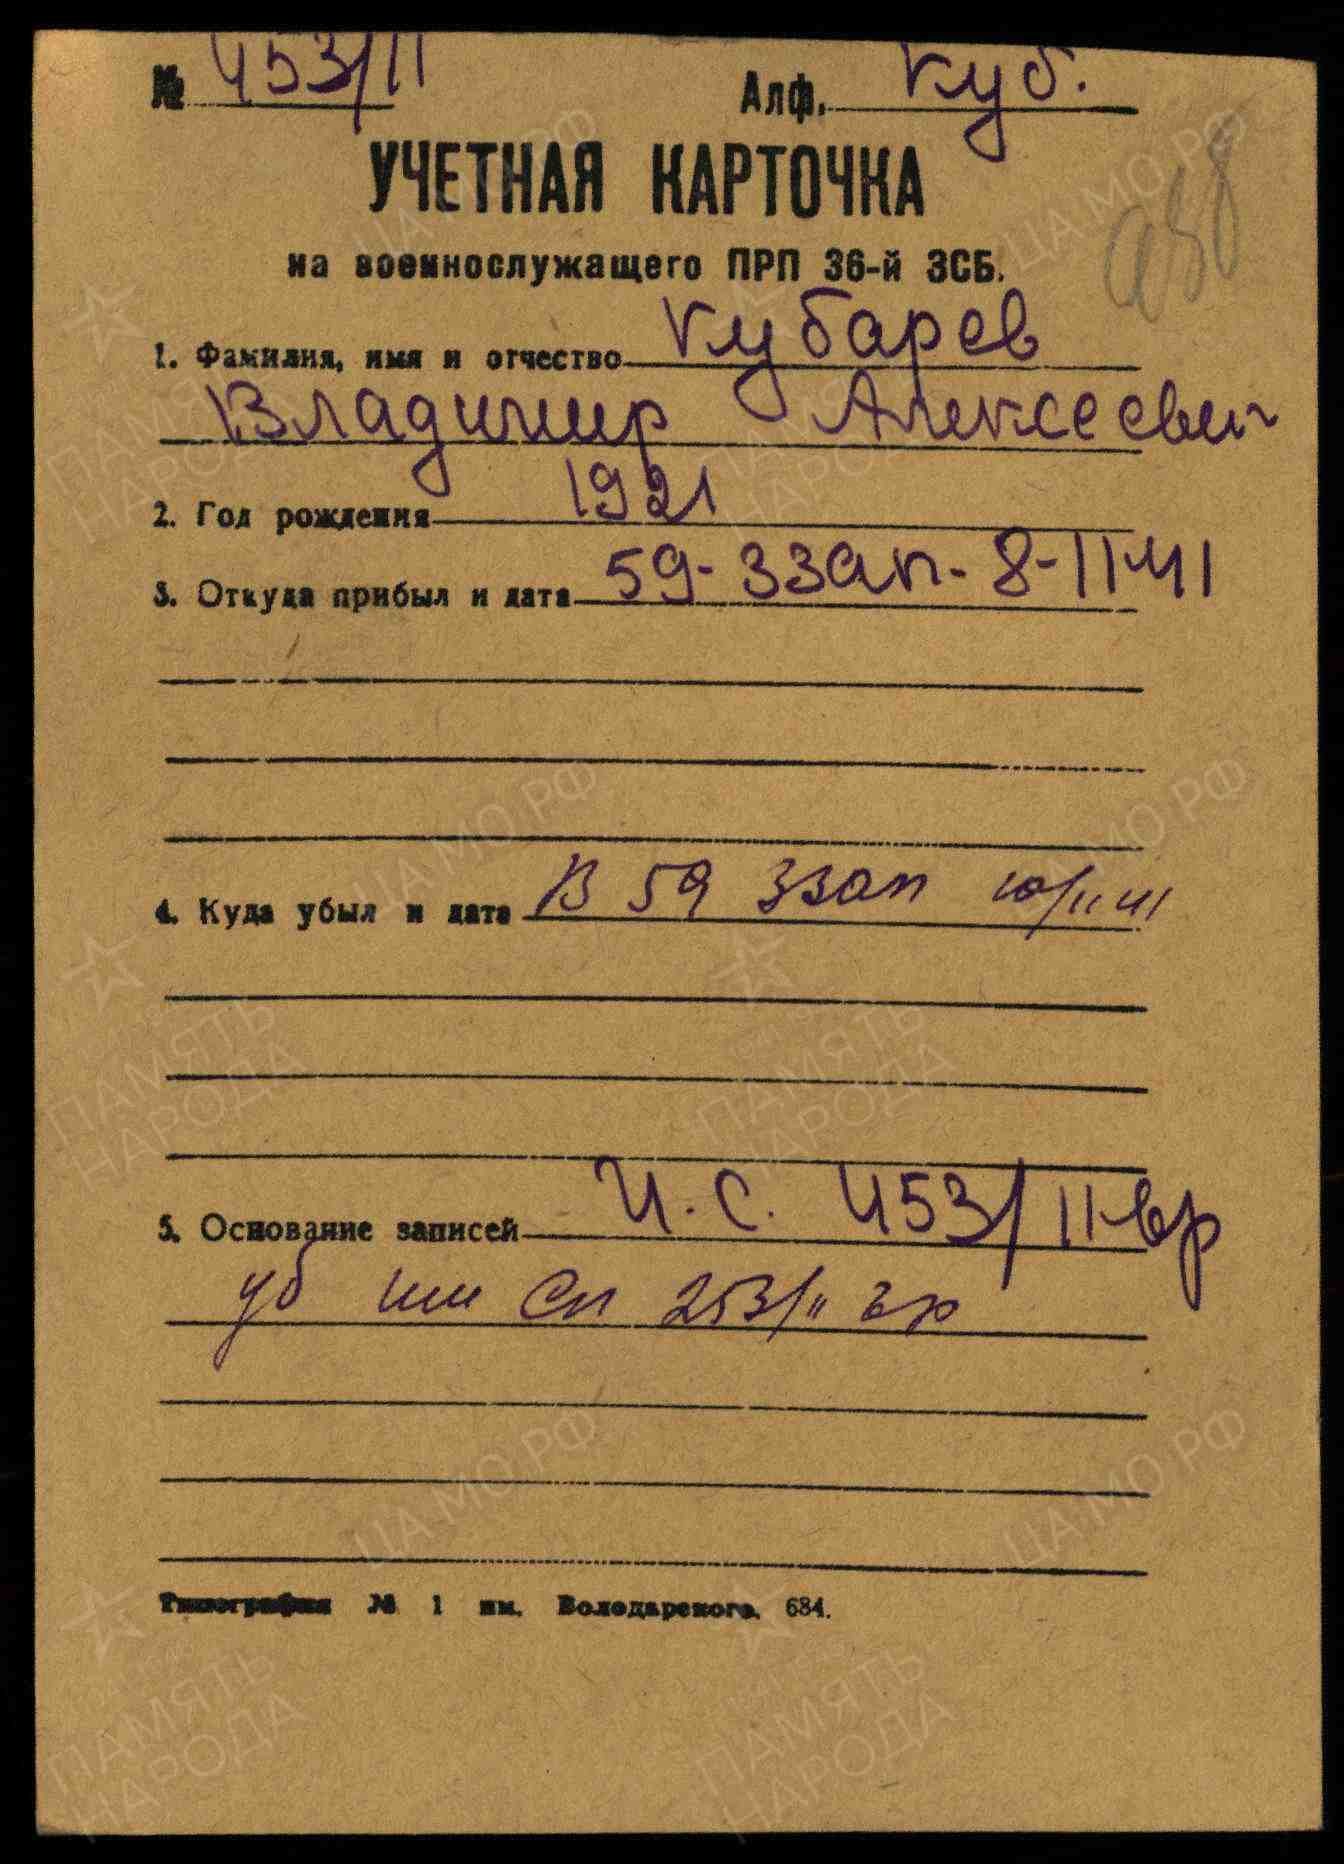 № 453/11 Алф. Куб.
УЧЕТНАЯ КАРТОЧКА
на военнослужащего ПРП 36-й ЗСБ.
1. Фамилия, имя и отчество Кубарев
Владимир Алексеевич
2. Год рождения 1921
3. Откуда прибыл и дата 59-ЗЗАП- 8-11-41
4. Куда убыл и дата В 59 ЗЗАП 10/11 41
5. Основание записей И.С. 453/11-вр
уб им Сп 253/11 вр
Типография № 1 им. Володарского. 684.
ЦА МО РФ
ПАМЯТЬ
НАРОДА